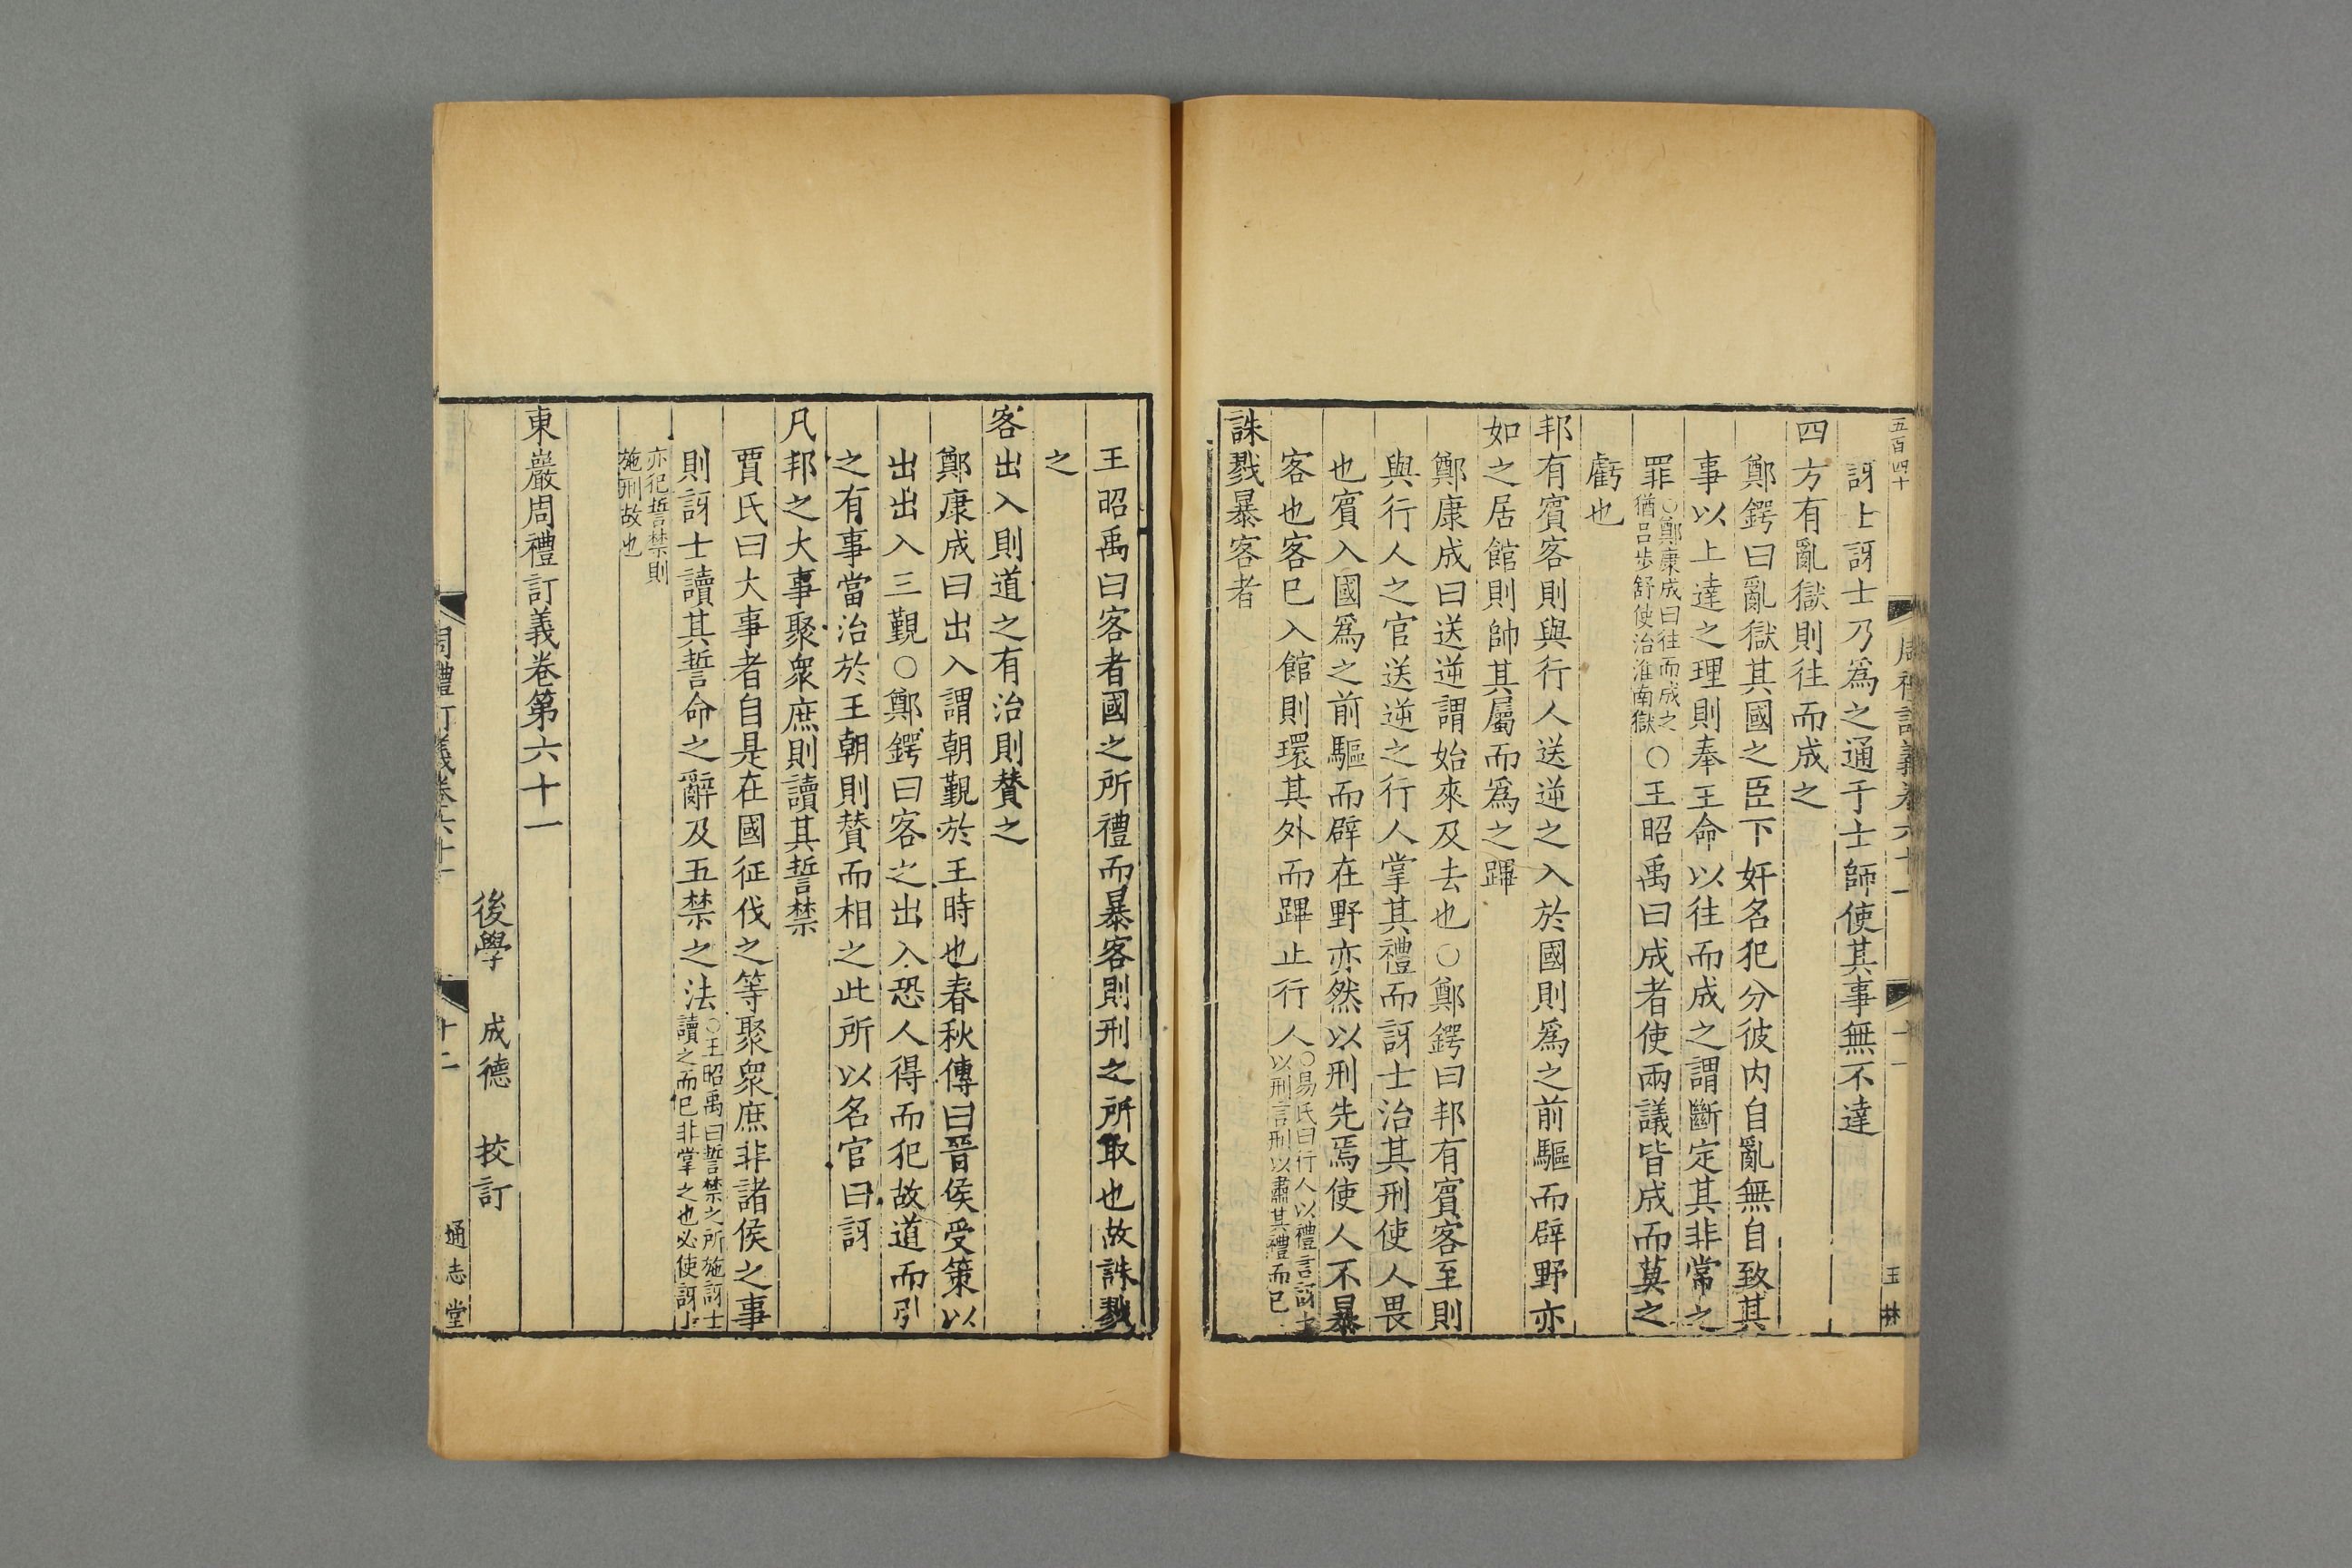 五百四十
周禮訂義卷六十一
十一
玉林
訝士訝士乃爲之通于士師使其事無不達
四方有亂獄則往而成之
鄭鍔曰亂獄其國之臣下奸名犯分彼内自亂無自致其
事以上達之理則奉王命以往而成之謂斷定其非常之
罪○鄭康成曰往而成之猶吕步舒使治淮南獄○王昭禹曰成者使兩議皆成而莫之
虧也
邦有賓客則與行人送逆之入於國則爲之前驅而辟野亦
如之居館則帥其屬而爲之蹕
鄭康成曰送逆謂始來及去也○鄭鍔曰邦有賓客至則
與行人之官送逆之行人掌其禮而訝士治其刑使人畏
也賓入國爲之前驅而辟在野亦然以刑先焉使人不暴
客也客巳入館則環其外而蹕止行人○易氏曰行人以禮言訝士以刑言刑以肅其禮而巳
誅戮暴客者
王昭禹曰客者國之所禮而暴客則刑之所取也故誅戮
之
客出入則道之有治則賛之
鄭康成曰出入謂朝覲於王時也春秋傳曰晉侯受策以
出出入三覲○鄭鍔曰客之出入恐人得而犯故道而引
之有事當治於王朝則賛而相之此所以名官曰訝
凡邦之大事聚衆庶則讀其誓禁
賈氏曰大事者自是在國征伐之等聚衆庶非諸侯之事
則訝士讀其誓命之辭及五禁之法○王昭禹曰誓禁之所施訝士讀之而巳非掌之也必使訝士
亦犯誓禁則施刑故也
東巖周禮訂義卷第六十一
後學 成德 挍訂
周禮訂義卷六十一
十二
通志堂